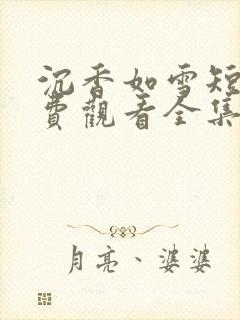 沉香如雪短
費觀看全集
月亮、婆婆